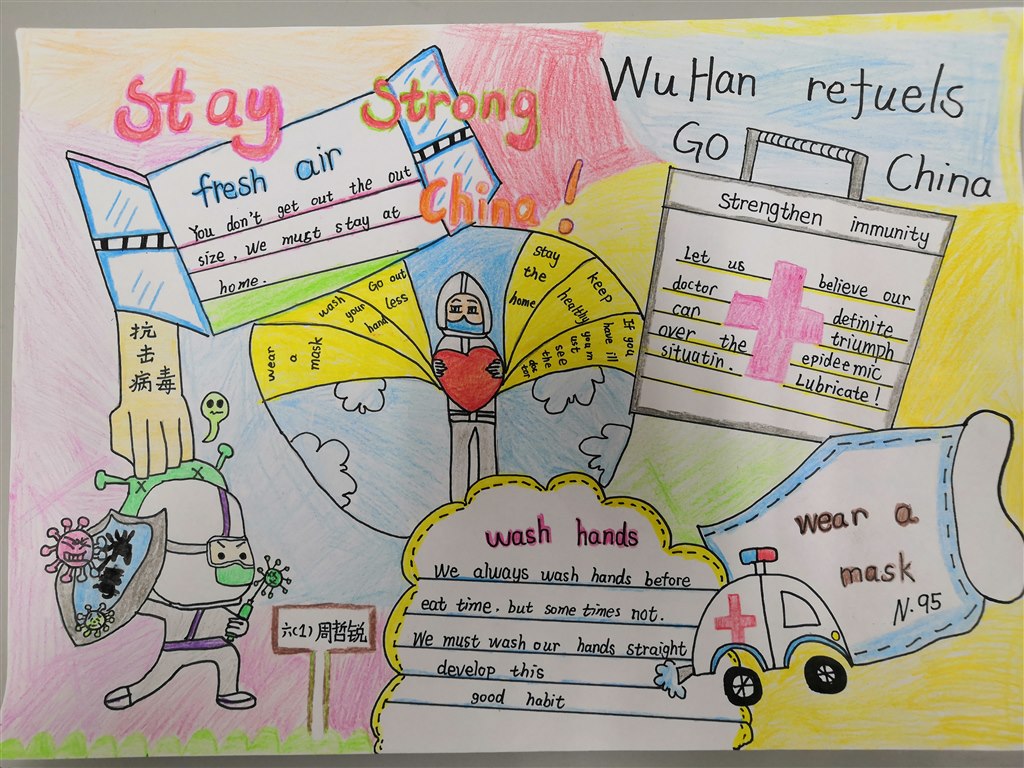 Stay Strong
China!
WuHan refuels
GO China
fresh air
You don't get out the out
size, We must stay at
home.
strengthen immunity
Let us believe our
doctor definite
can triumph
over the epideemic
situatin. Lubricate!
wear a mask
wash your hand
Go out less
stay the home
keep healthy
If you have ill
you must see
the doctor
抗击病毒
wash hands
We always wash hands before
eat time. but some times not.
We must wash our hands straight
develop this
good habit
wear a
mask
N.95
六(1)周哲锐